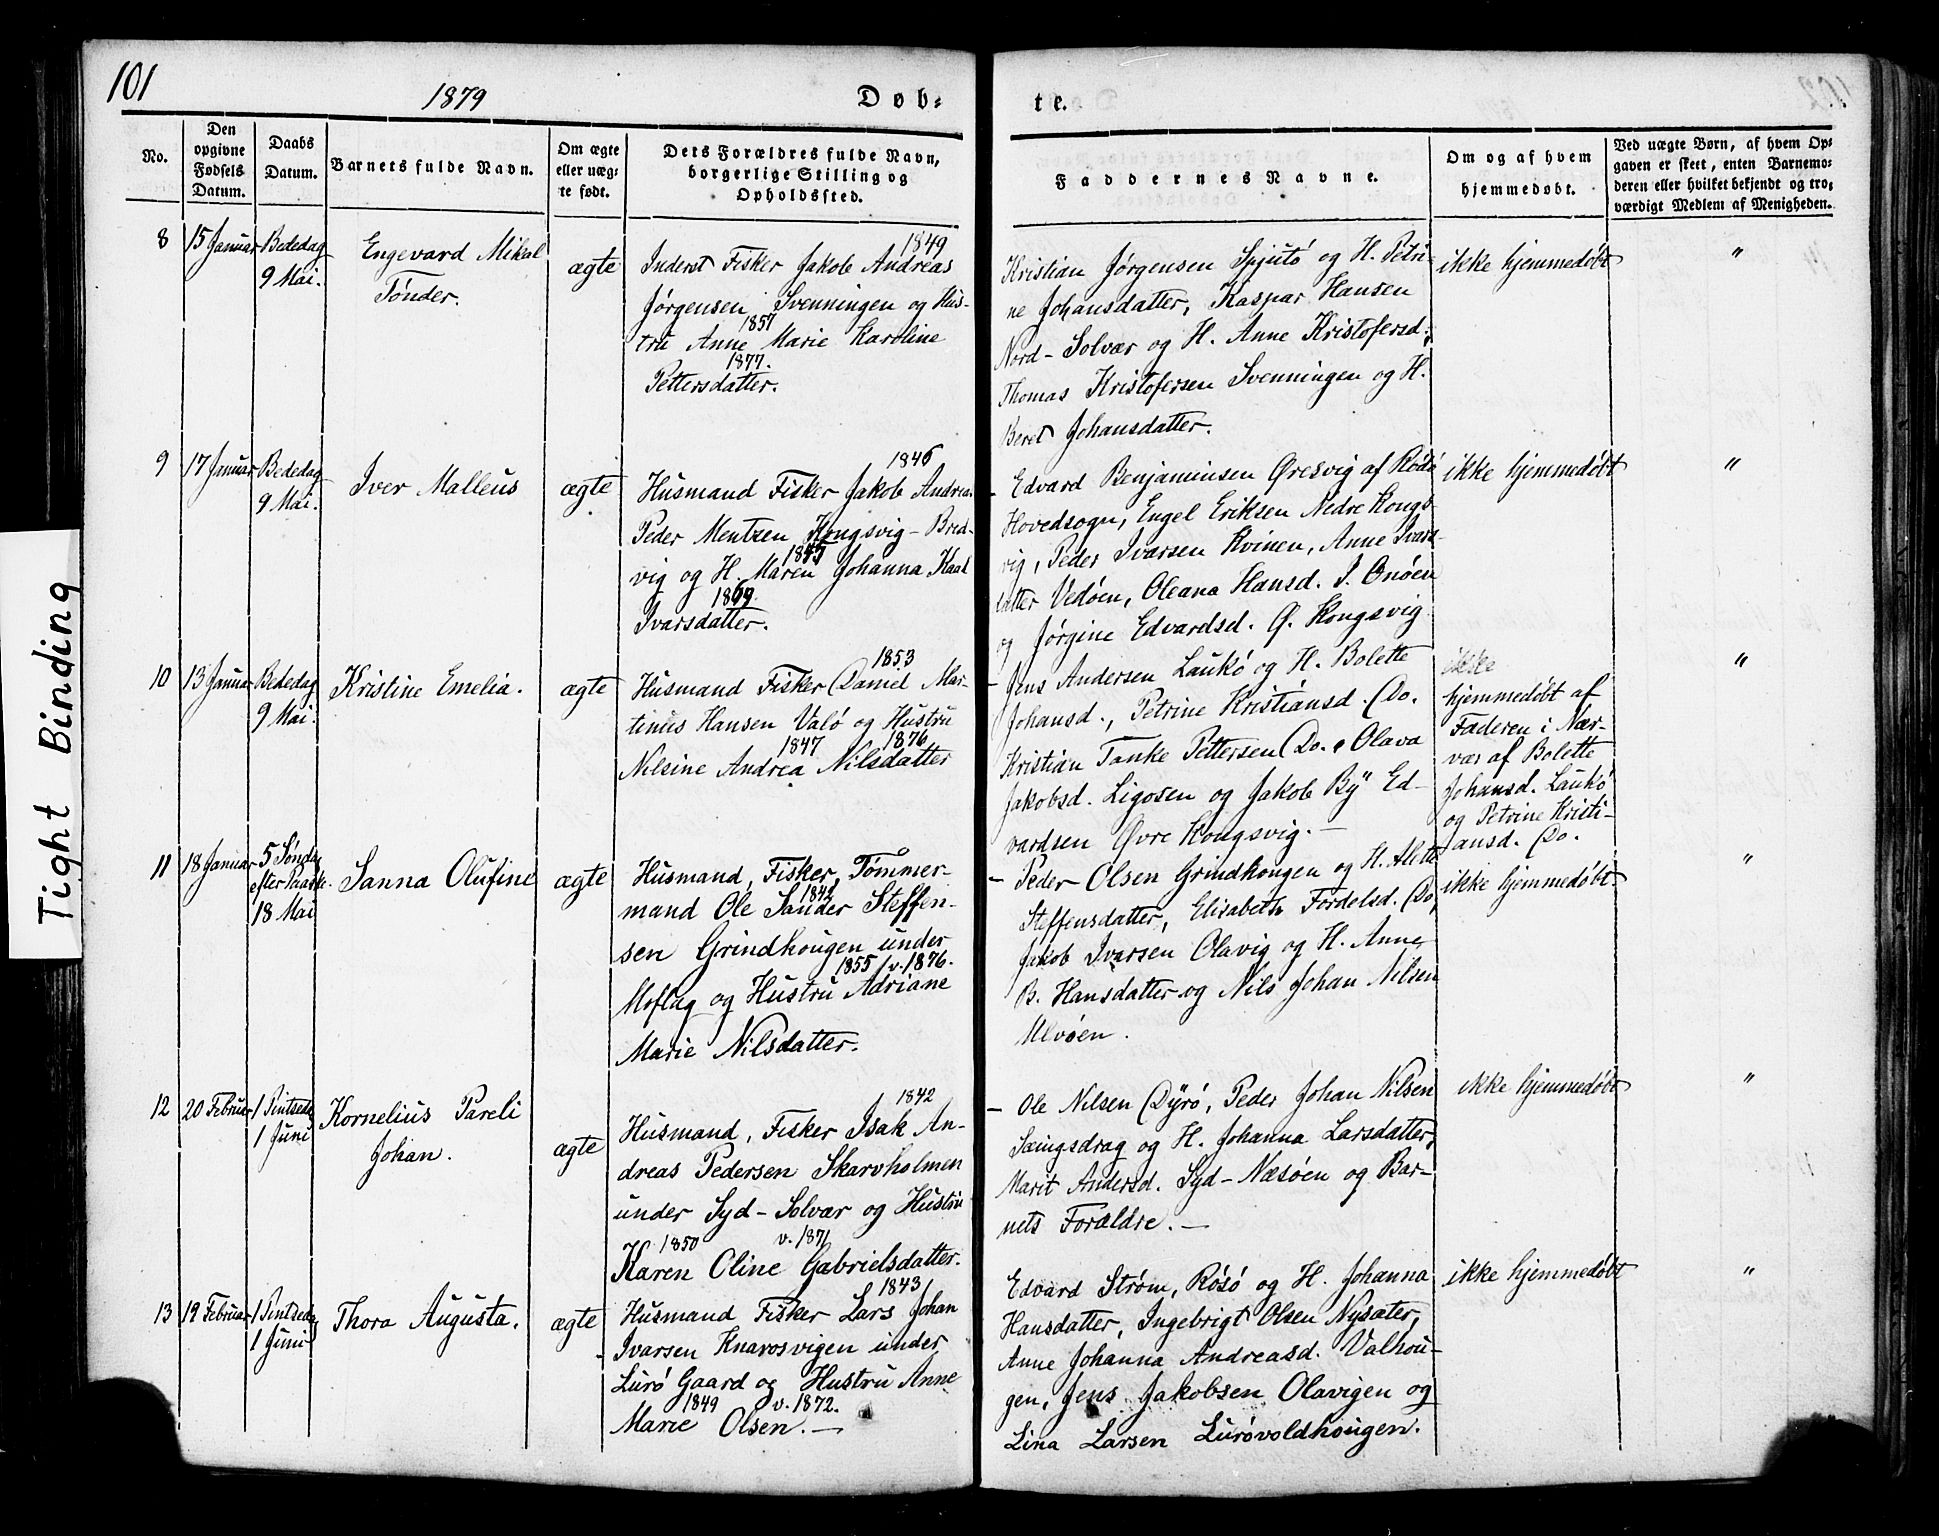 101
1879
Døb-
te.
No.
Den opgivne Fødsels Datum.
Daabs Datum.
Barnets fulde Navn.
Om ægte eller uægte født.
Dets Forældres fulde Navn, borgerlige Stilling og Opholdssted.
Faddernes Navne.
Om og af hvem hjemmedøbt.
Ved uægte Børn, af hvem Opgaven er skeet, enten Barnemoderen eller hvilket bekjendt og troværdigt Medlem af Menigheden.
Tight Binding
8
15 Januar
Bededag
9 Mai.
Engevard Mikal
Tønder.
ægte
1849
Inderst Fisker Jakob Andreas
Jørgensen Svenningen og Hus-
1857
tru Anne Marie Karoline
1877.
Pettersdatter.
Kristian Jørgensen Spjutø og H. Petri-
ne Johansdatter, Kaspar Hansen
Nord-Solvær og H. Anne Kristofersd.,
Thomas Kristofersen Svenningen og H.
Beret Johansdatter.
ikke hjemmedøbt
"
9
17 Januar
Bededag
9 Mai.
Iver Malleus
ægte
1846
Husmand Fisker Jakob Andreas
Peder Mentzen Kongsvig-Bred-
1845
vig og H. Maren Johanna Kaal
1869.
Ivarsdatter.
- Edvard Benjaminsen Øresvig af Rødø
Hovedsogn, Engel Eriksen Nedre Kongs-
vig, Peder Ivarsen Kvinen, Anne Ivars-
datter Vedøen, Oleana Hansd. I. Onøen
og Jørgine Edvardsd. Ø. Kongsvig.
ikke hjemmedøbt
"
10
13 Januar
Bededag
9 Mai.
Kristine Emelia.
ægte
1853
Husmand Fisker Daniel Mar-
tinus Hansen Valø og Hustru
1847 1876
Nilsine Andrea Nilsdatter
- Jens Andersen Laukø og H. Bolette
Johansd., Petrine Kristiansd. Do.
Kristian Tanke Pettersen Do., Olava
Jakobsd. Ligosen og Jakob Bÿ Ed-
vardsen Øvre Kongsvig. -
ikke
hjemmedøbt af
Faderen i Nær-
vær af Bolette
Johansd. Laukø
og Petrine Kristi-
ansd. Do.
"
11
18 Januar
5 Søndag
efter Paaske.
18 Mai
Sanna Olufine
ægte
Husmand, Fisker, Tømmer-
1842
mand Ole Sander Steffen-
sen Grindhougen under
1855 v. 1876.
Moflag og Hustru Adriane
Marie Nilsdatter.
- Peder Olsen Grindhougen og H. Alette
Steffensdatter, Elisabeth Fordelsd. Do,
Jakob Ivarsen Olavig og H. Anne
B. Hansdatter og Nils Johan Nilsen
Ulvøen.
ikke hjemmedøbt.
"
12
20 Februar
1 Pintsedag
1 Juni
Kornelius Pareli
Johan.
ægte
1842
Husmand, Fisker Isak An-
dreas Pedersen Skarvholmen
under Syd-Solvær og Hustru
1850 v. 1871
Karen Oline Gabrielsdatter.
- Ole Nilsen Dÿrø, Peder Johan Nilsen
Sæingsdrag og H. Johanna Larsdatter,
Marit Andersd. Syd-Næsøen og Bar-
nets Forældre. -
ikke hjemmedøbt
"
13
19 Februar
1 Pintsedag
1 Juni
Thora Augusta.
ægte
1843
Husmand Fisker Lars Johan
Ivarsen Knarosvigen under
Lurø Gaard og Hustru Anne
1849 v. 1872.
Marie Olsen. -
Edvard Strøm, Røsø og H. Johanna
Hansdatter, Ingebrigt Olsen Nysæter,
Anne Johanna Andreasd. Valhou-
gen, Jens Jakobsen Olavigen og
Lina Larsen Lurøvoldhougen.
ikke hjemmedøbt
"